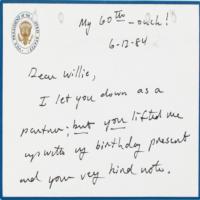 My 60th - ouch!
6-12-84
Dear Willie,
I let you down as a
partner; but you lifted me
up with my birthday present
and your very kind note.